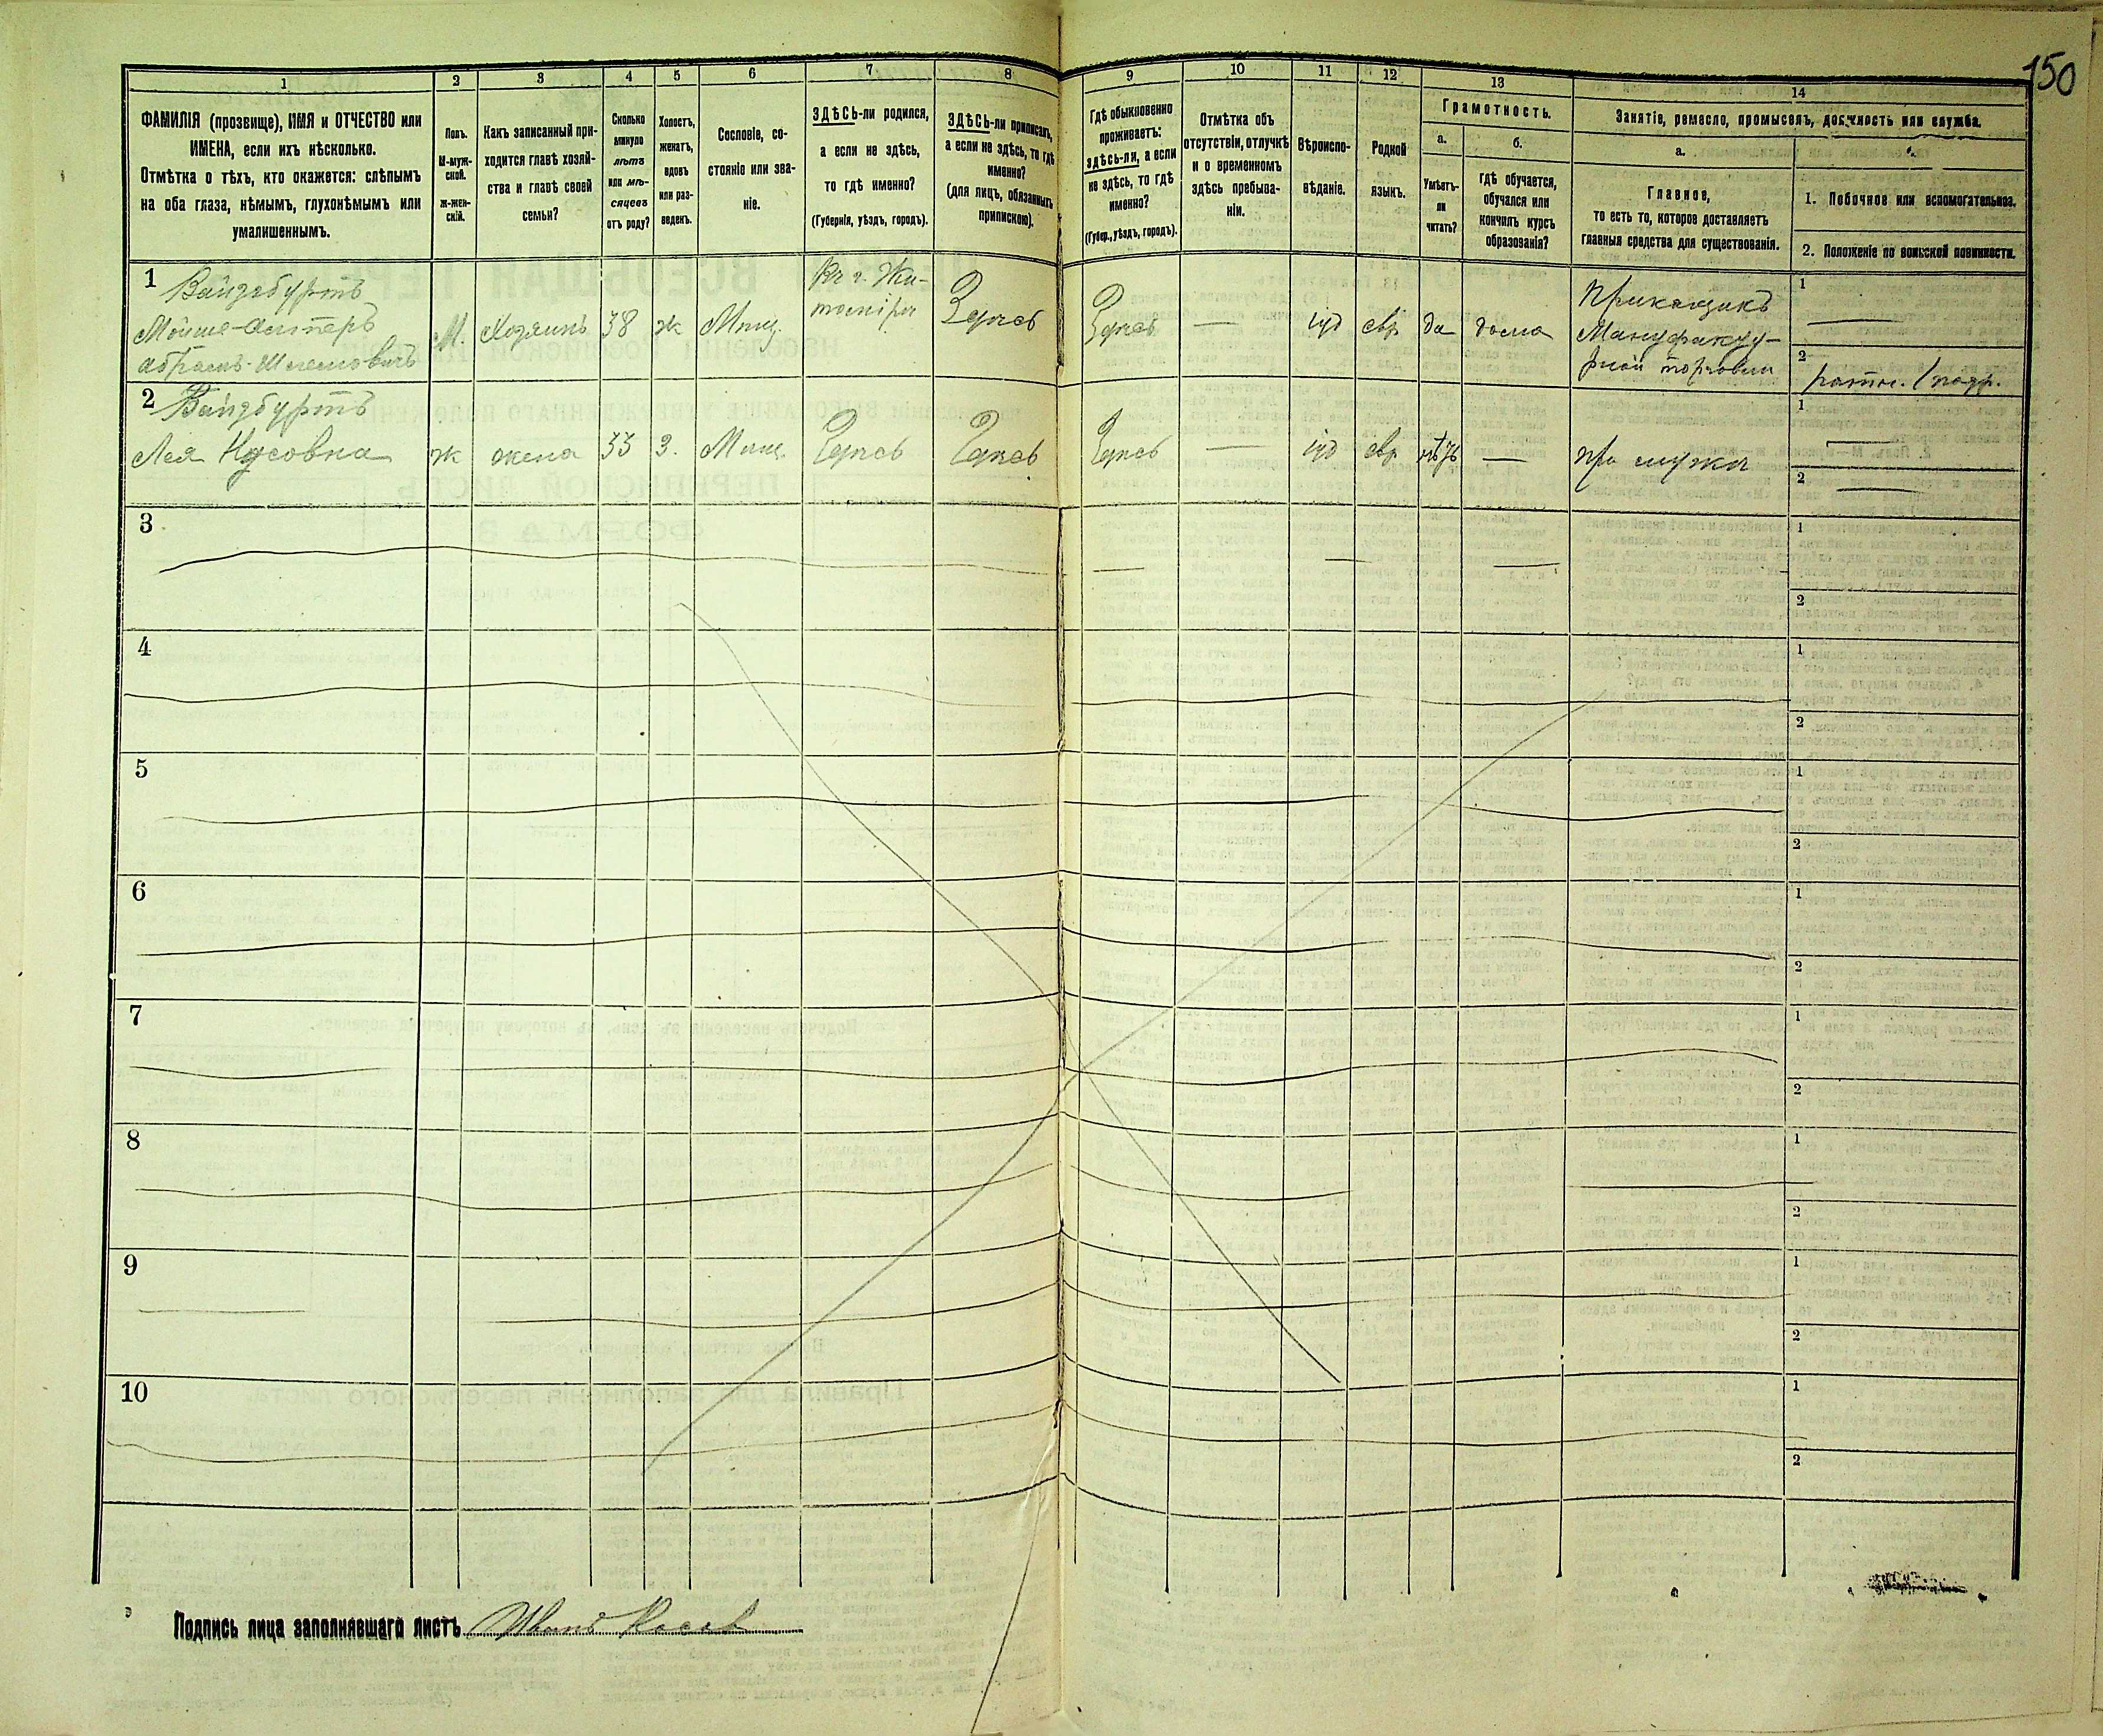 150
1
2
3
4
5
6
7
8
9
10
11
12
13
14
ФАМИЛІЯ (прозвище), ИМЯ и ОТЧЕСТВО или
ИМЕНА, если ихъ нѣсколько.
Отмѣтка о тѣхъ, кто окажется: слѣпымъ
на оба глаза, нѣмымъ, глухонѣмымъ или
умалишеннымъ.
Полъ.
М-муж-
ской.
ж-жен-
скій.
Какъ записанный при-
ходится главѣ хозяй-
ства и главѣ своей
семьи?
Сколько
минуло
лѣтъ
или мѣ-
сяцевъ
отъ роду?
Холостъ,
женатъ,
вдовъ
или раз-
веденъ.
Сословіе, со-
стояніе или зва-
ніе.
ЗДѢСЬ-ли родился,
а если не здѣсь,
то гдѣ именно?
(Губернія, уѣздъ, городъ).
ЗДѢСЬ-ли приписанъ,
а если не здѣсь, то гдѣ
именно?
(для лицъ, обязанныхъ
припискою).
Гдѣ обыкновенно
проживаетъ:
здѣсь-ли, а если
не здѣсь, то гдѣ
именно?
(Губер., уѣздъ, городъ).
Отмѣтка объ
отсутствіи, отлучкѣ
и о временномъ
здѣсь пребыва-
ніи.
Вѣроиспо-
вѣданіе.
Родной
языкъ.
Грамотность.
а.
Умѣетъ-
ли
читать?
б.
гдѣ обучается,
обучался или
кончилъ курсъ
образованія?
Занятіе, ремесло, промыселъ, должность или служба.
а.
Главное,
то есть то, которое доставляетъ
главныя средства для существованія.
1. Побочное или вспомогательное.
2. Положеніе по воинской повинности.
1 Вайзбуртъ
Мойше-Ахтеръ
Абрамъ-Шлемовичъ
М.
Хозяинъ
38
ж
Мѣщ.
Въ г. Жи-
томірѣ
Здѣсь
Здѣсь
—
іуд
евр
да
дома
Прикащикъ
Мануфакту-
рной торговли
1 —
2 ратн. 1 разр.
2 Вайзбуртъ
Лея Нусовна
ж
жена
33
З.
Мѣщ.
Здѣсь
Здѣсь
Здѣсь
—
іуд
евр
нѣтъ
—
при мужѣ
1 —
2 —
3
1
2
4
1
2
5
1
2
6
1
2
7
1
2
8
1
2
9
1
2
10
1
2
Подпись лица заполнявшаго листъ Иванъ